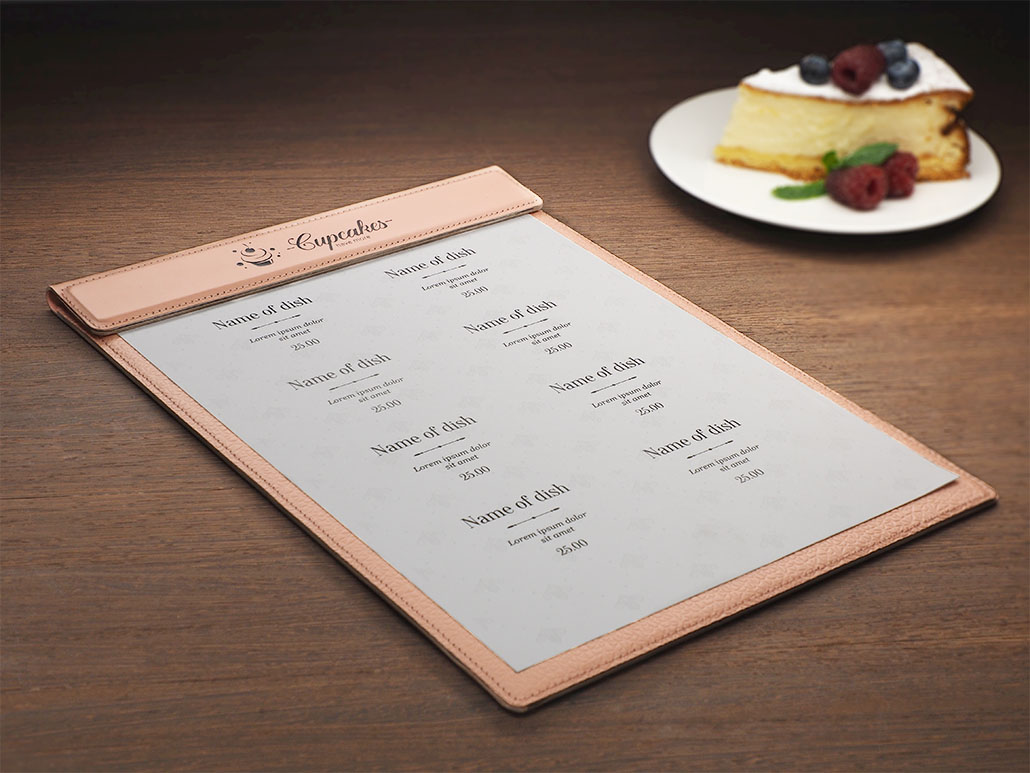 Cupcakes
have more
Name of dish
Lorem ipsum dolor
sit amet
25.00
Name of dish
Lorem ipsum dolor
sit amet
25.00
Name of dish
Lorem ipsum dolor
sit amet
25.00
Name of dish
Lorem ipsum dolor
sit amet
25.00
Name of dish
Lorem ipsum dolor
sit amet
25.00
Name of dish
Lorem ipsum dolor
sit amet
25.00
Name of dish
Lorem ipsum dolor
sit amet
25.00
Name of dish
Lorem ipsum dolor
sit amet
25.00